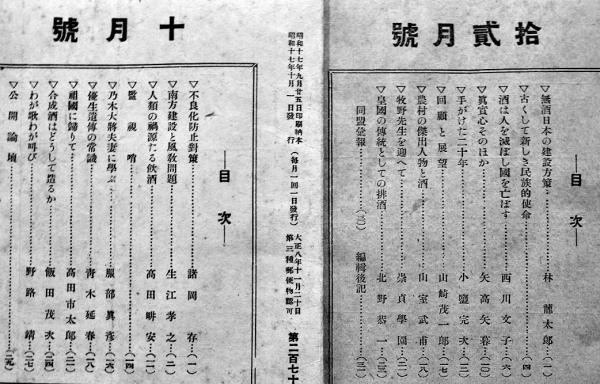 拾貳月號
目次
▽無酒日本の建設方策………林龍太郎…(一)
▽古くして新しき民族的使命………(四)
▽酒は人を滅ぼし國を亡ぼす………西川文子…(六)
▽眞實心そのほか………矢高矢暮…(一〇)
▽手がけた二十年………小鹽完次…(一三)
▽回顧と展望………山崎茂一郎…(一七)
▽農村の傑出人物と酒………山室武甫…(一八)
▽牧野先生を迎へて………崇貞學園…(二一)
▽皇國の傳統としての排酒………北野恭一…(二三)
同盟彙報………(三一) 編輯後記………(三二)
昭和十七年九月廿五日印刷納本
昭和十七年十月一日發行
(每月一回一日發行)
大正八年十一月二十日
第三種郵便物認可
第二百七十
十月號
目次
▽不良化防止對策………諸岡存…(一)
▽南方建設と風敎問題………生江孝之…(二)
▽人類の禍源たる飮酒………高田畊安…(一一)
▽監視哨………(一四)
▽乃木大將夫妻に學ぶ………服部眞彥…(一六)
▽優生遺傳の常識………靑木延春…(一八)
▽祖國に歸りて………高田市太郎…(二一)
▽合成酒はどうして造るか………飯田茂次…(二四)
▽わが歌わが叫び………野路靖…(二七)
▽公開論壇………(二九)